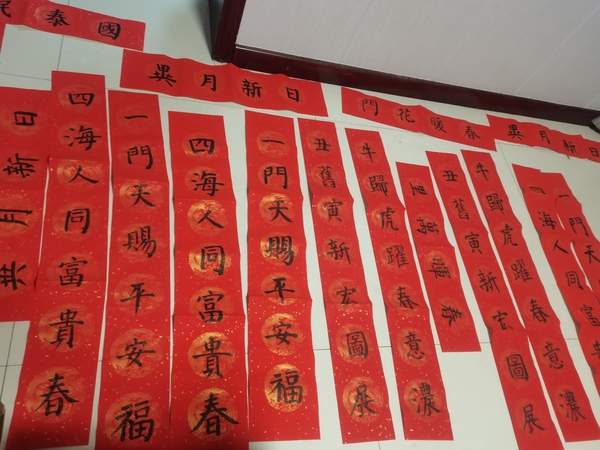 國泰民
日新月異
春暖花開
日新月異
日新月
四海人同富貴春
一門天賜平安福
四海人同富貴春
一門天賜平安福
丑舊寅新宏圖展
牛歸虎躍春意濃
春暉萬里
丑舊寅新宏圖展
牛歸虎躍春意濃
四海人同富
一門天